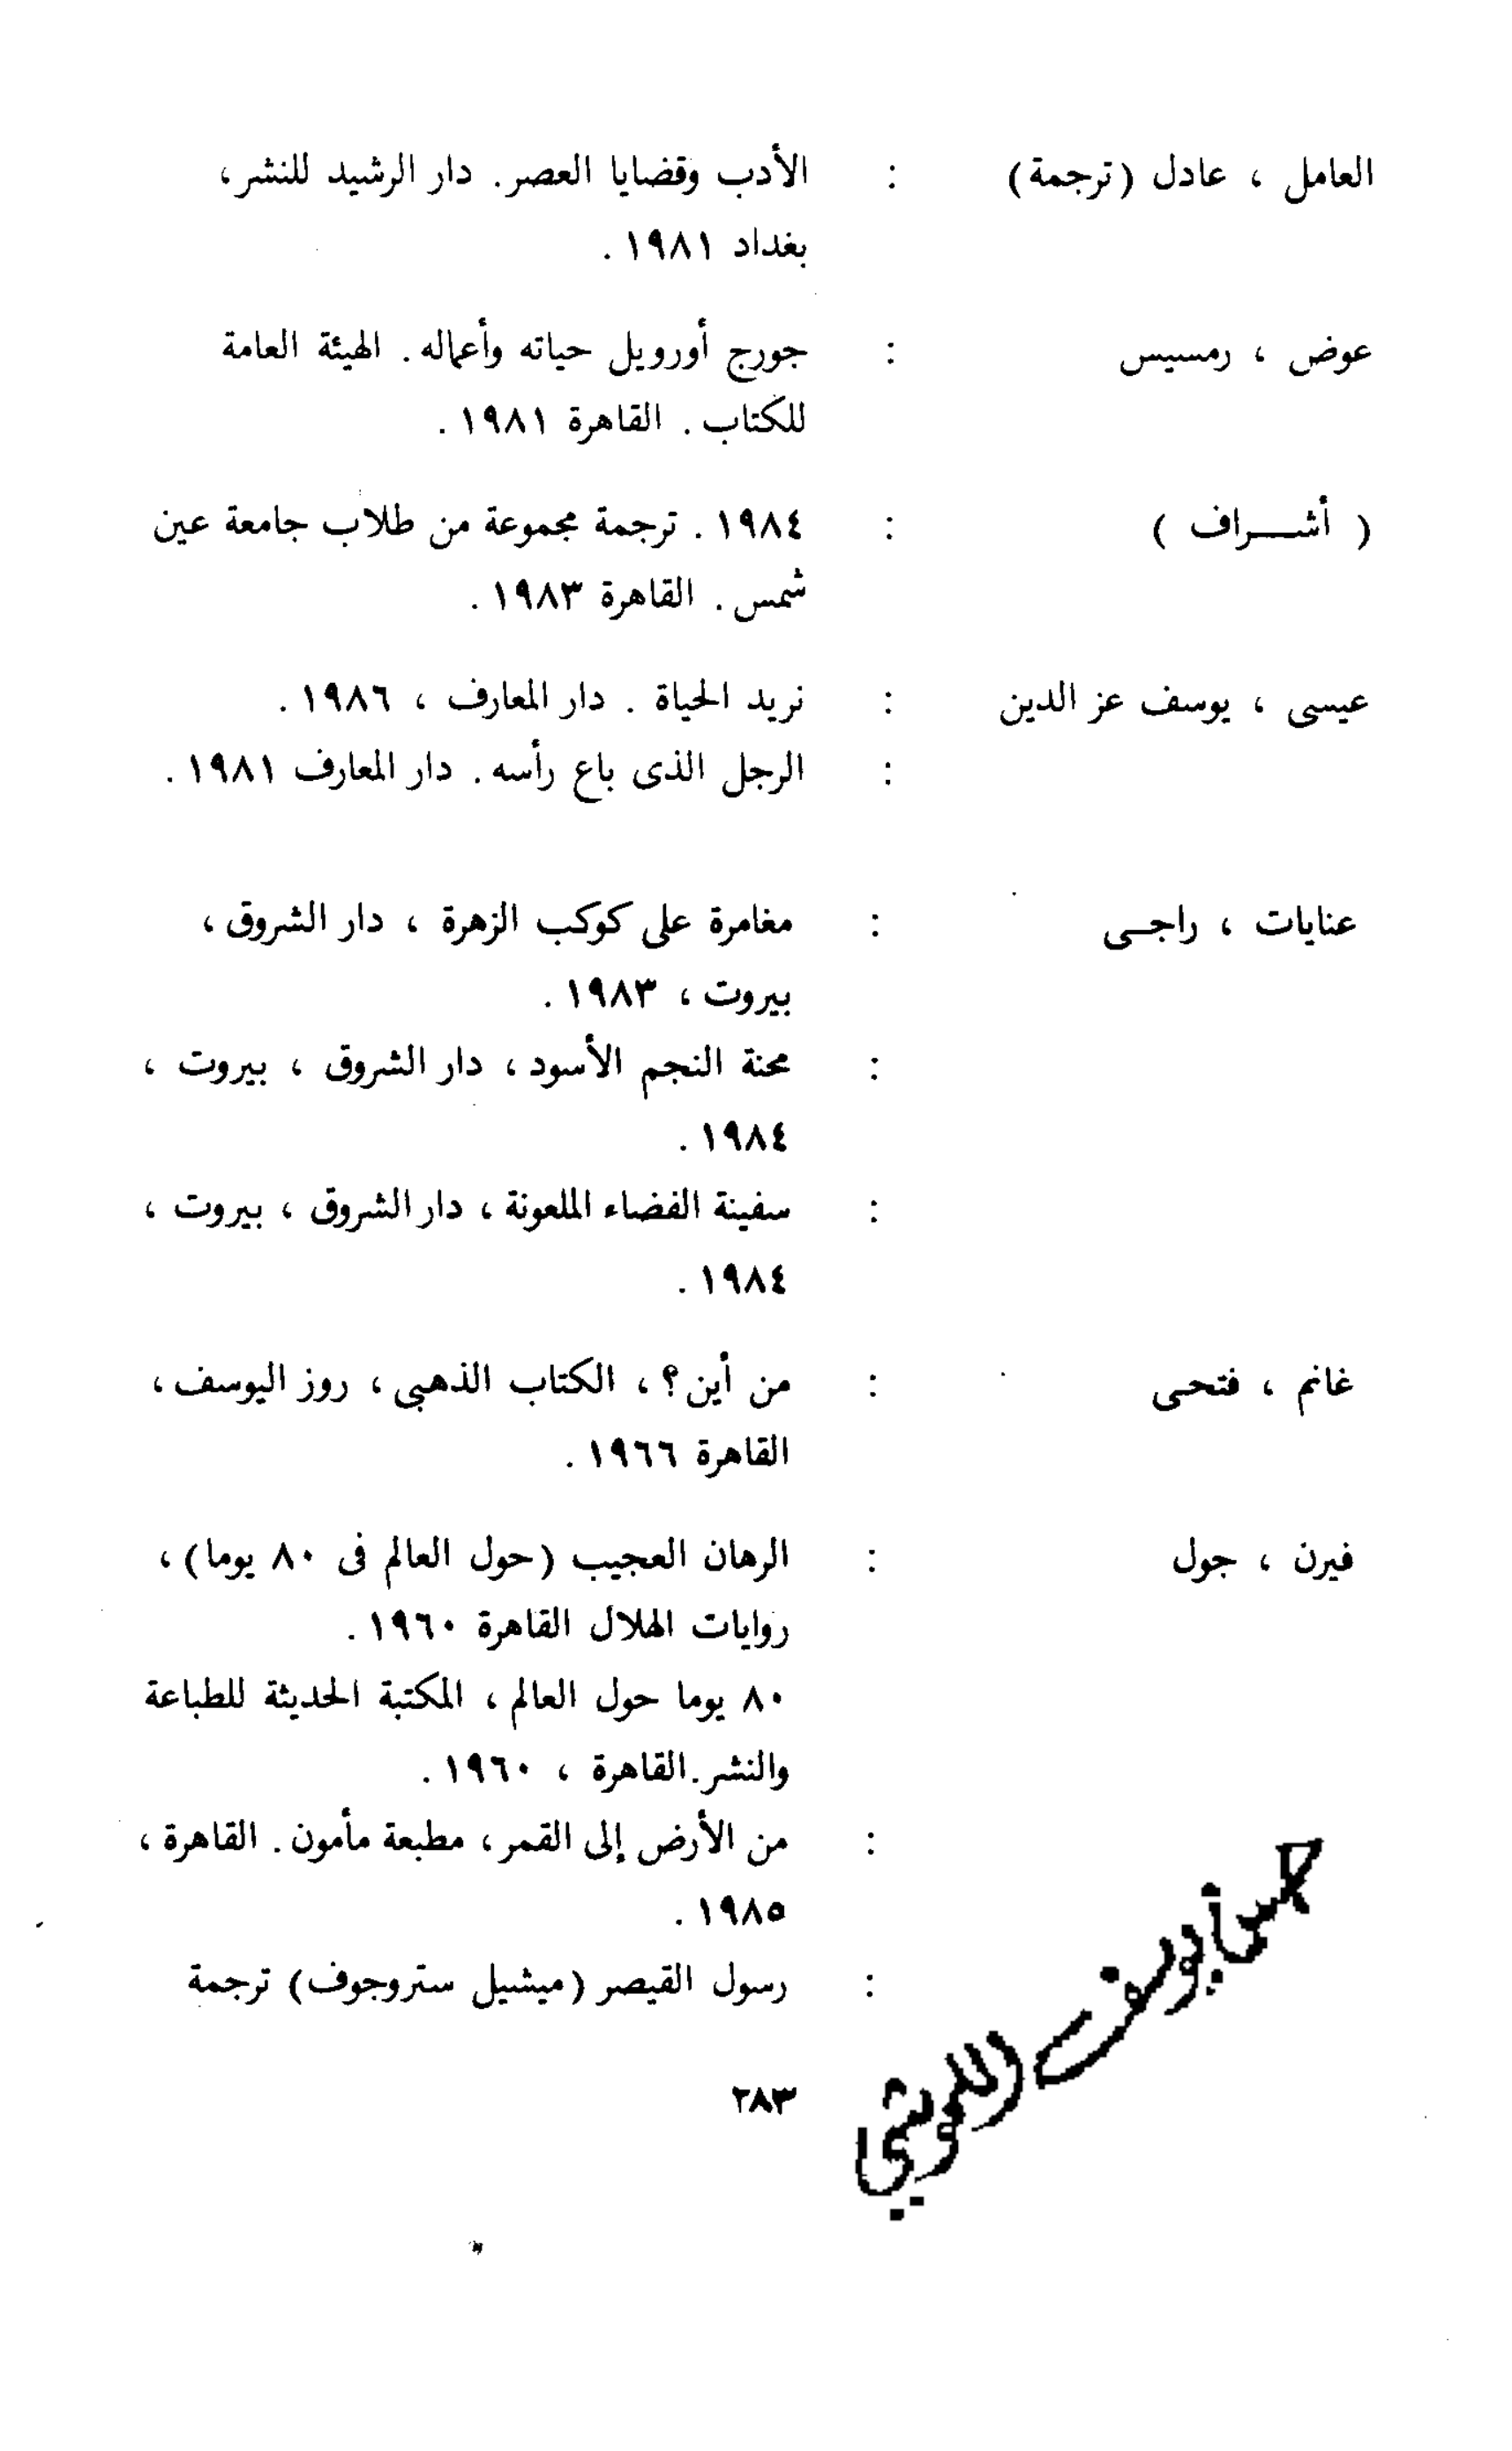 العامل ، عادل (ترجمة) : الأدب وقضايا العصر. دار الرشيد للنشر،
بغداد ١٩٨١ .
عوض ، رمسيس : جورج أورويل حياته وأعماله . الهيئة العامة
للكتاب . القاهرة ١٩٨١ .
( أشـــراف ) : ١٩٨٤ . ترجمة مجموعة من طلاب جامعة عين
شمس . القاهرة ١٩٨٣ .
عيسى ، يوسف عز الدين : نريد الحياة . دار المعارف ، ١٩٨٦ .
: الرجل الذى باع رأسه . دار المعارف ١٩٨١ .
عنايات ، راجـى : مغامرة على كوكب الزهرة ، دار الشروق ،
بيروت ، ١٩٨٣ .
: محنة النجم الأسود ، دار الشروق ، بيروت ،
١٩٨٤ .
: سفينة الفضاء الملعونة ، دار الشروق ، بيروت ،
١٩٨٤ .
غانم ، فتحى : من أين؟ ، الكتاب الذهبى ، روز اليوسف ،
القاهرة ١٩٦٦ .
فيرن ، جول : الرهان العجيب (حول العالم فى ٨٠ يوما) ،
روايات الهلال القاهرة ١٩٦٠ .
٨٠ يوما حول العالم ، المكتبة الحديثة للطباعة
والنشر.القاهرة ، ١٩٦٠ .
: من الأرض إلى القمر ، مطبعة مأمون . القاهرة ،
١٩٨٥ .
: رسول القيصر (ميشيل ستروجوف) ترجمة
٢٨٣